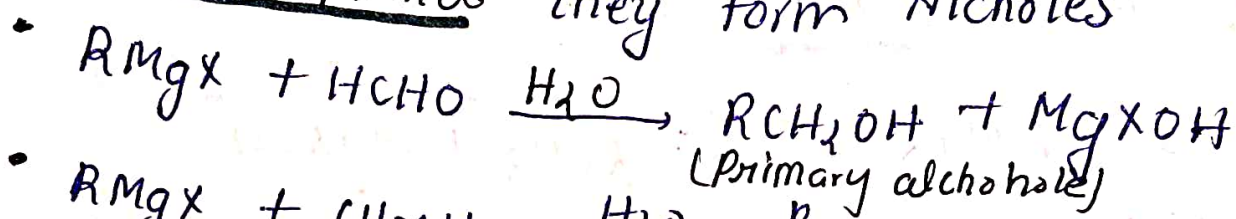 they form Alcholes
• RMgX + HCHO H2O → RCH2OH + MgXOH
(Primary alchohole)
• RMgX +